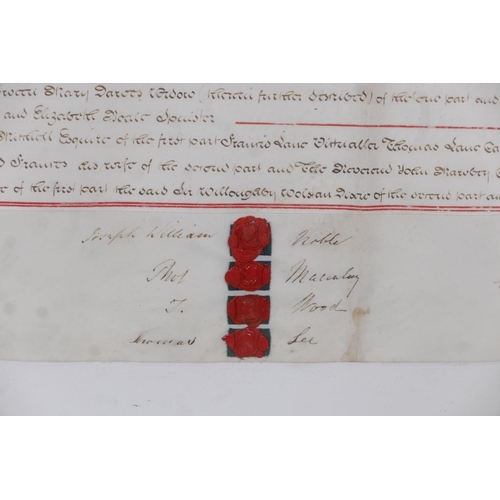 Mary Darets Widow (therein further described) of the one part and
and Elizabeth Neale Spinster
Mitchell Esquire of the first part Francis Lane Victualler Thomas Lane
Frances his wife of the second part and The Reverend John Mawbey
of the first part the said Sir Willoughby Wolstan Dixie of the second part
Joseph William Noble
Thos Macaulay
T. Wood
Lee